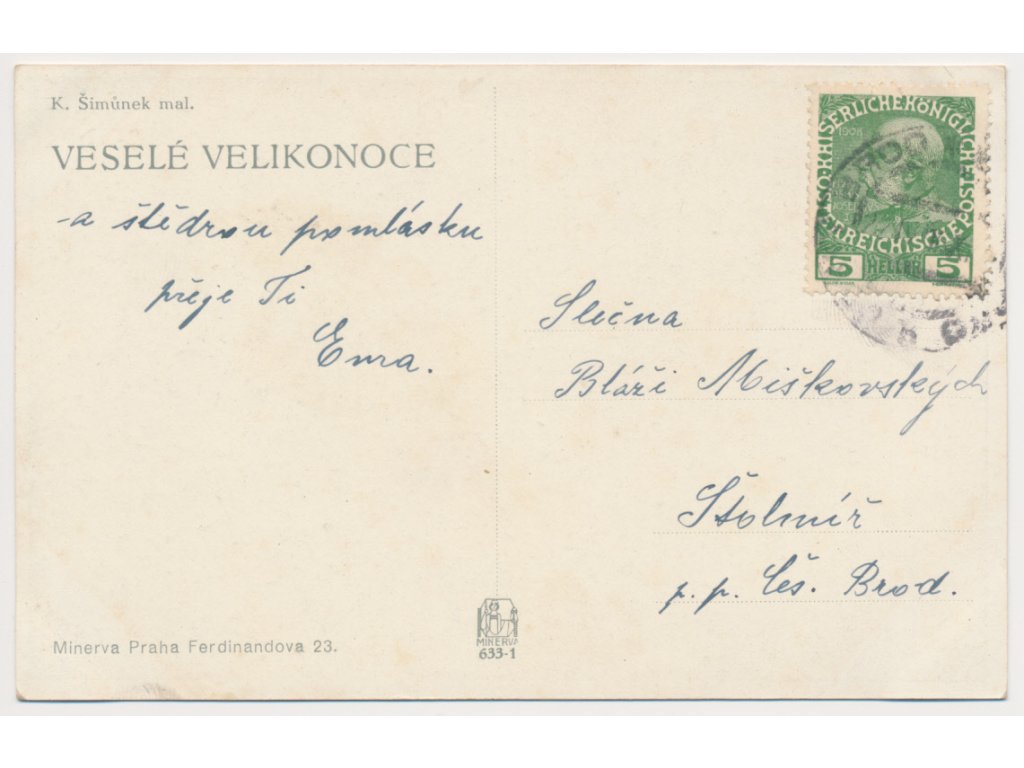 K. Šimůnek mal.
VESELÉ VELIKONOCE
-a štědrou pomlásku
přeje Ti
Ema.
KAISERLICHE KÖNIGLICHE
ÖSTERREICHISCHE POST
1908
5 HELLER 5
BROD
Slečna
Bláži Miškovských
Štolmíř
p. p. Čes. Brod.
Minerva Praha Ferdinandova 23.
MINERVA
633-1